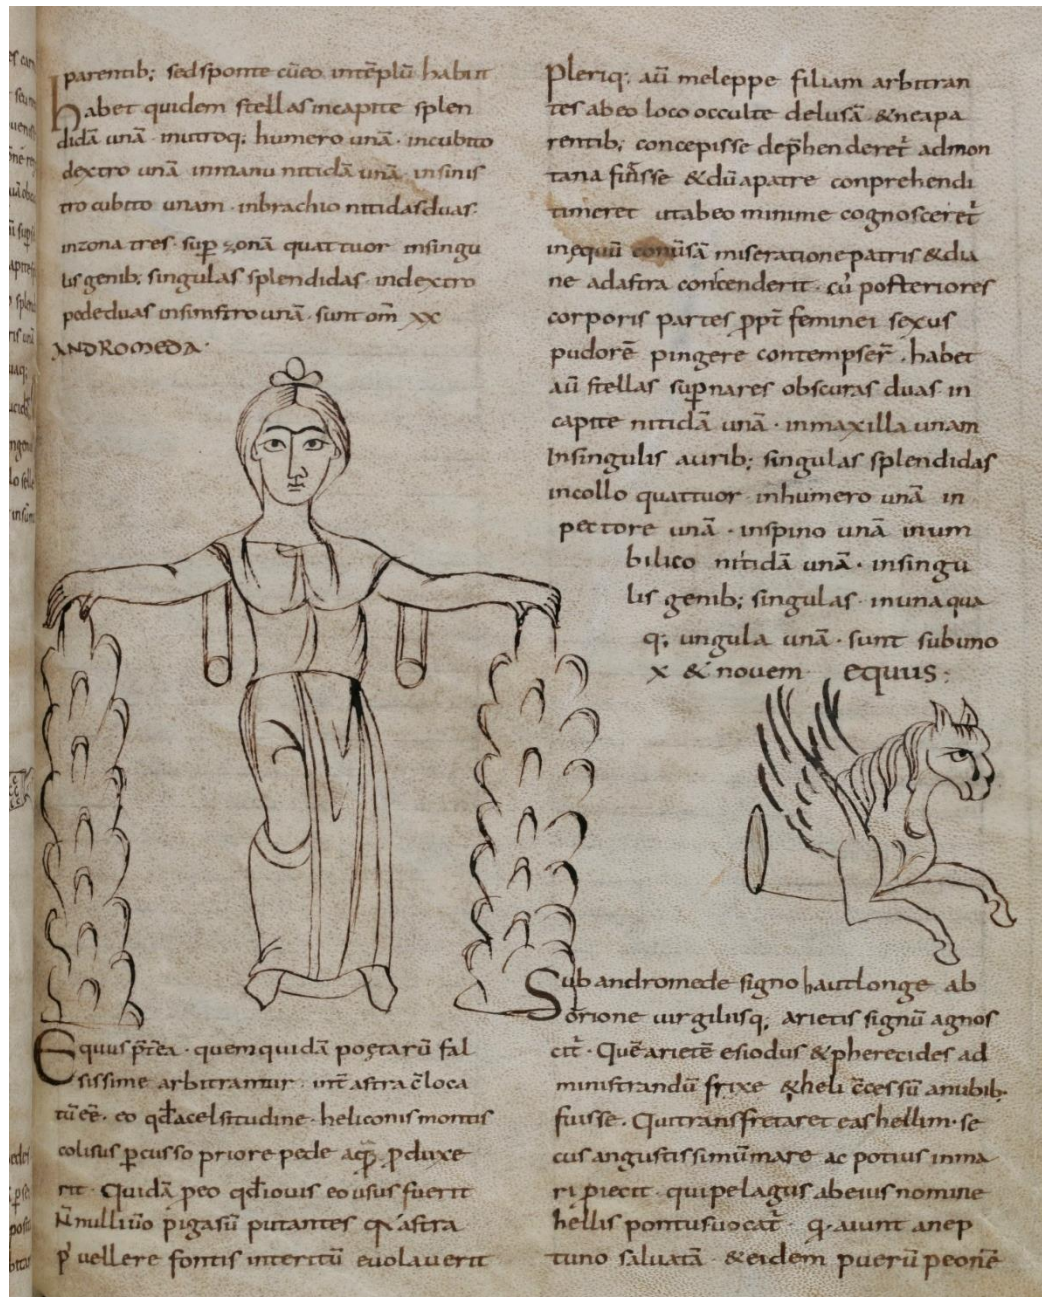 parentib; sed sponte cūeo intēplū habiit
habet quidem stellas incapite splen
didā unā · inutroq; humero unā · incubito
dextro unā inmanu nitidā unā · insinis
tro cubito unam · inbrachio nitidas duas·
inzona tres· sup zonā quattuor insingu
lis genib; singulas splendidas · indextro
pede duas insinistro unā · sunt om̄ xx
ANDROMEDA·
Equus p̄tea · quem quidā poetarū fal
sissime arbitrantur · int̄ astra c̄loca
tū eē· eo qđ acelsitudine · heliconis montis
colisus pcusso priore pede aq̄ pduxe
rit · Quidā peo qđ iouis eo usus fuerit
N̄nulli ūo pigasū putantes astra
vellere fontis interitū euolauerit
Pleriq; aū meleppe filiam arbitran
tes abeo loco occulte delusā &neapa
rentib; concepisse dep̄henderet̄ admon
tana fūisse &dū apatre conprehendi
timeret utabeo minime cognosceret̄
inequū conūsā miseratione patris &dia
ne adastra conscenderit · posteriores
corporis partes ppt̄ feminei sexus
pudorē pingere contempser̄ · habet
aū stellas supnares obscuras duas· in
capite nitidā unā · inmaxilla unam
Insingulis aurib; singulas splendidas
incollo quattuor· inhumero unā in
pectore unā · inspino unā inum
bilico nitidā unā · insingu
lis genib; singulas · inunaqua
q; ungula unā · sunt subuno
x & novem· equus·
Sub andromede signo hautlonge ab
orione uirgiliisq; arietis signū agnos
cit̄ · Quē arietē esiodus &pherecides ad
ministrandū frixe &heli c̄cessū anubib;
fuisse · Quitransfretaret eas hellim· se
cus angustissimū mare ac potius inma
ri piecit · quipelagus abeius nomine
hellis pontus uocat̄ · aiunt anep
tuno saluatā · &eidem puerū peonē